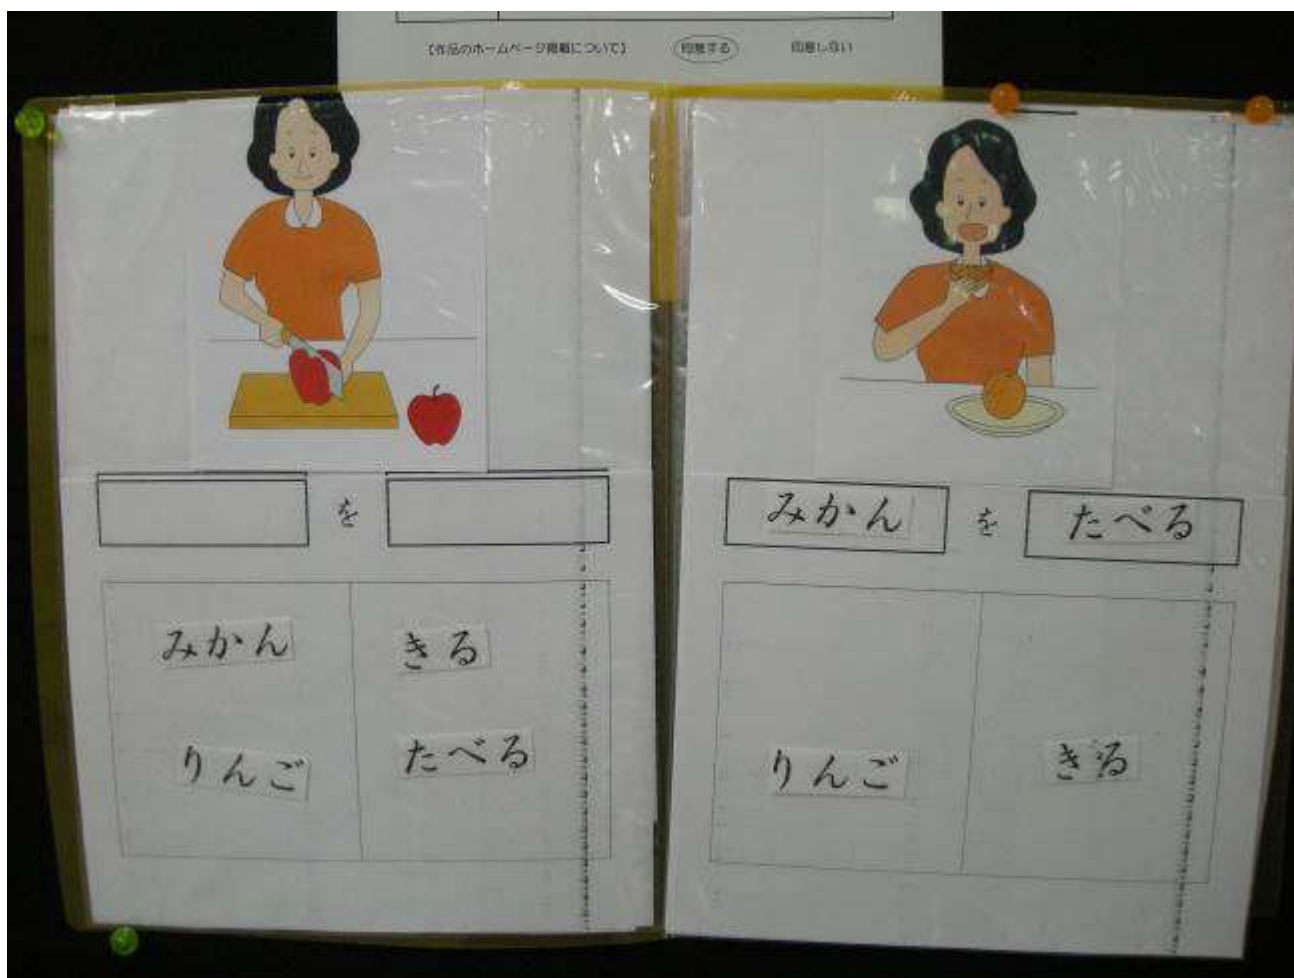 【作品のホームページ掲載について】 同意する 同意しない
を
みかん きる
りんご たべる
みかん を たべる
りんご きる